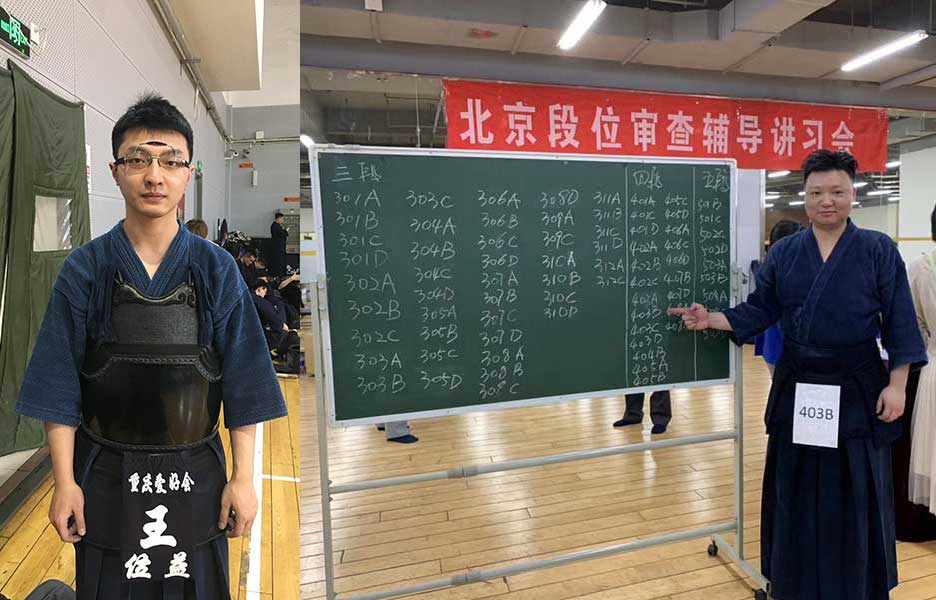 重庆爱好会
王
益
北京段位审查辅导讲习会
三段
301A
301B
301C
301D
302A
302B
302C
303A
303B
303C
304A
304B
304C
304D
305A
305B
305C
305D
306A
306B
306C
306D
307A
307B
307C
307D
308A
308B
308C
308D
309A
309C
310A
310B
310C
310D
311A
311B
311C
311D
312A
312C
四段
401A
401C
401D
402A
402B
402C
403A
403B
403C
403D
404B
405A
405B
405C
405D
406A
406C
406D
407B
407D
五段
501B
501C
502C
502D
503A
503B
504A
403B